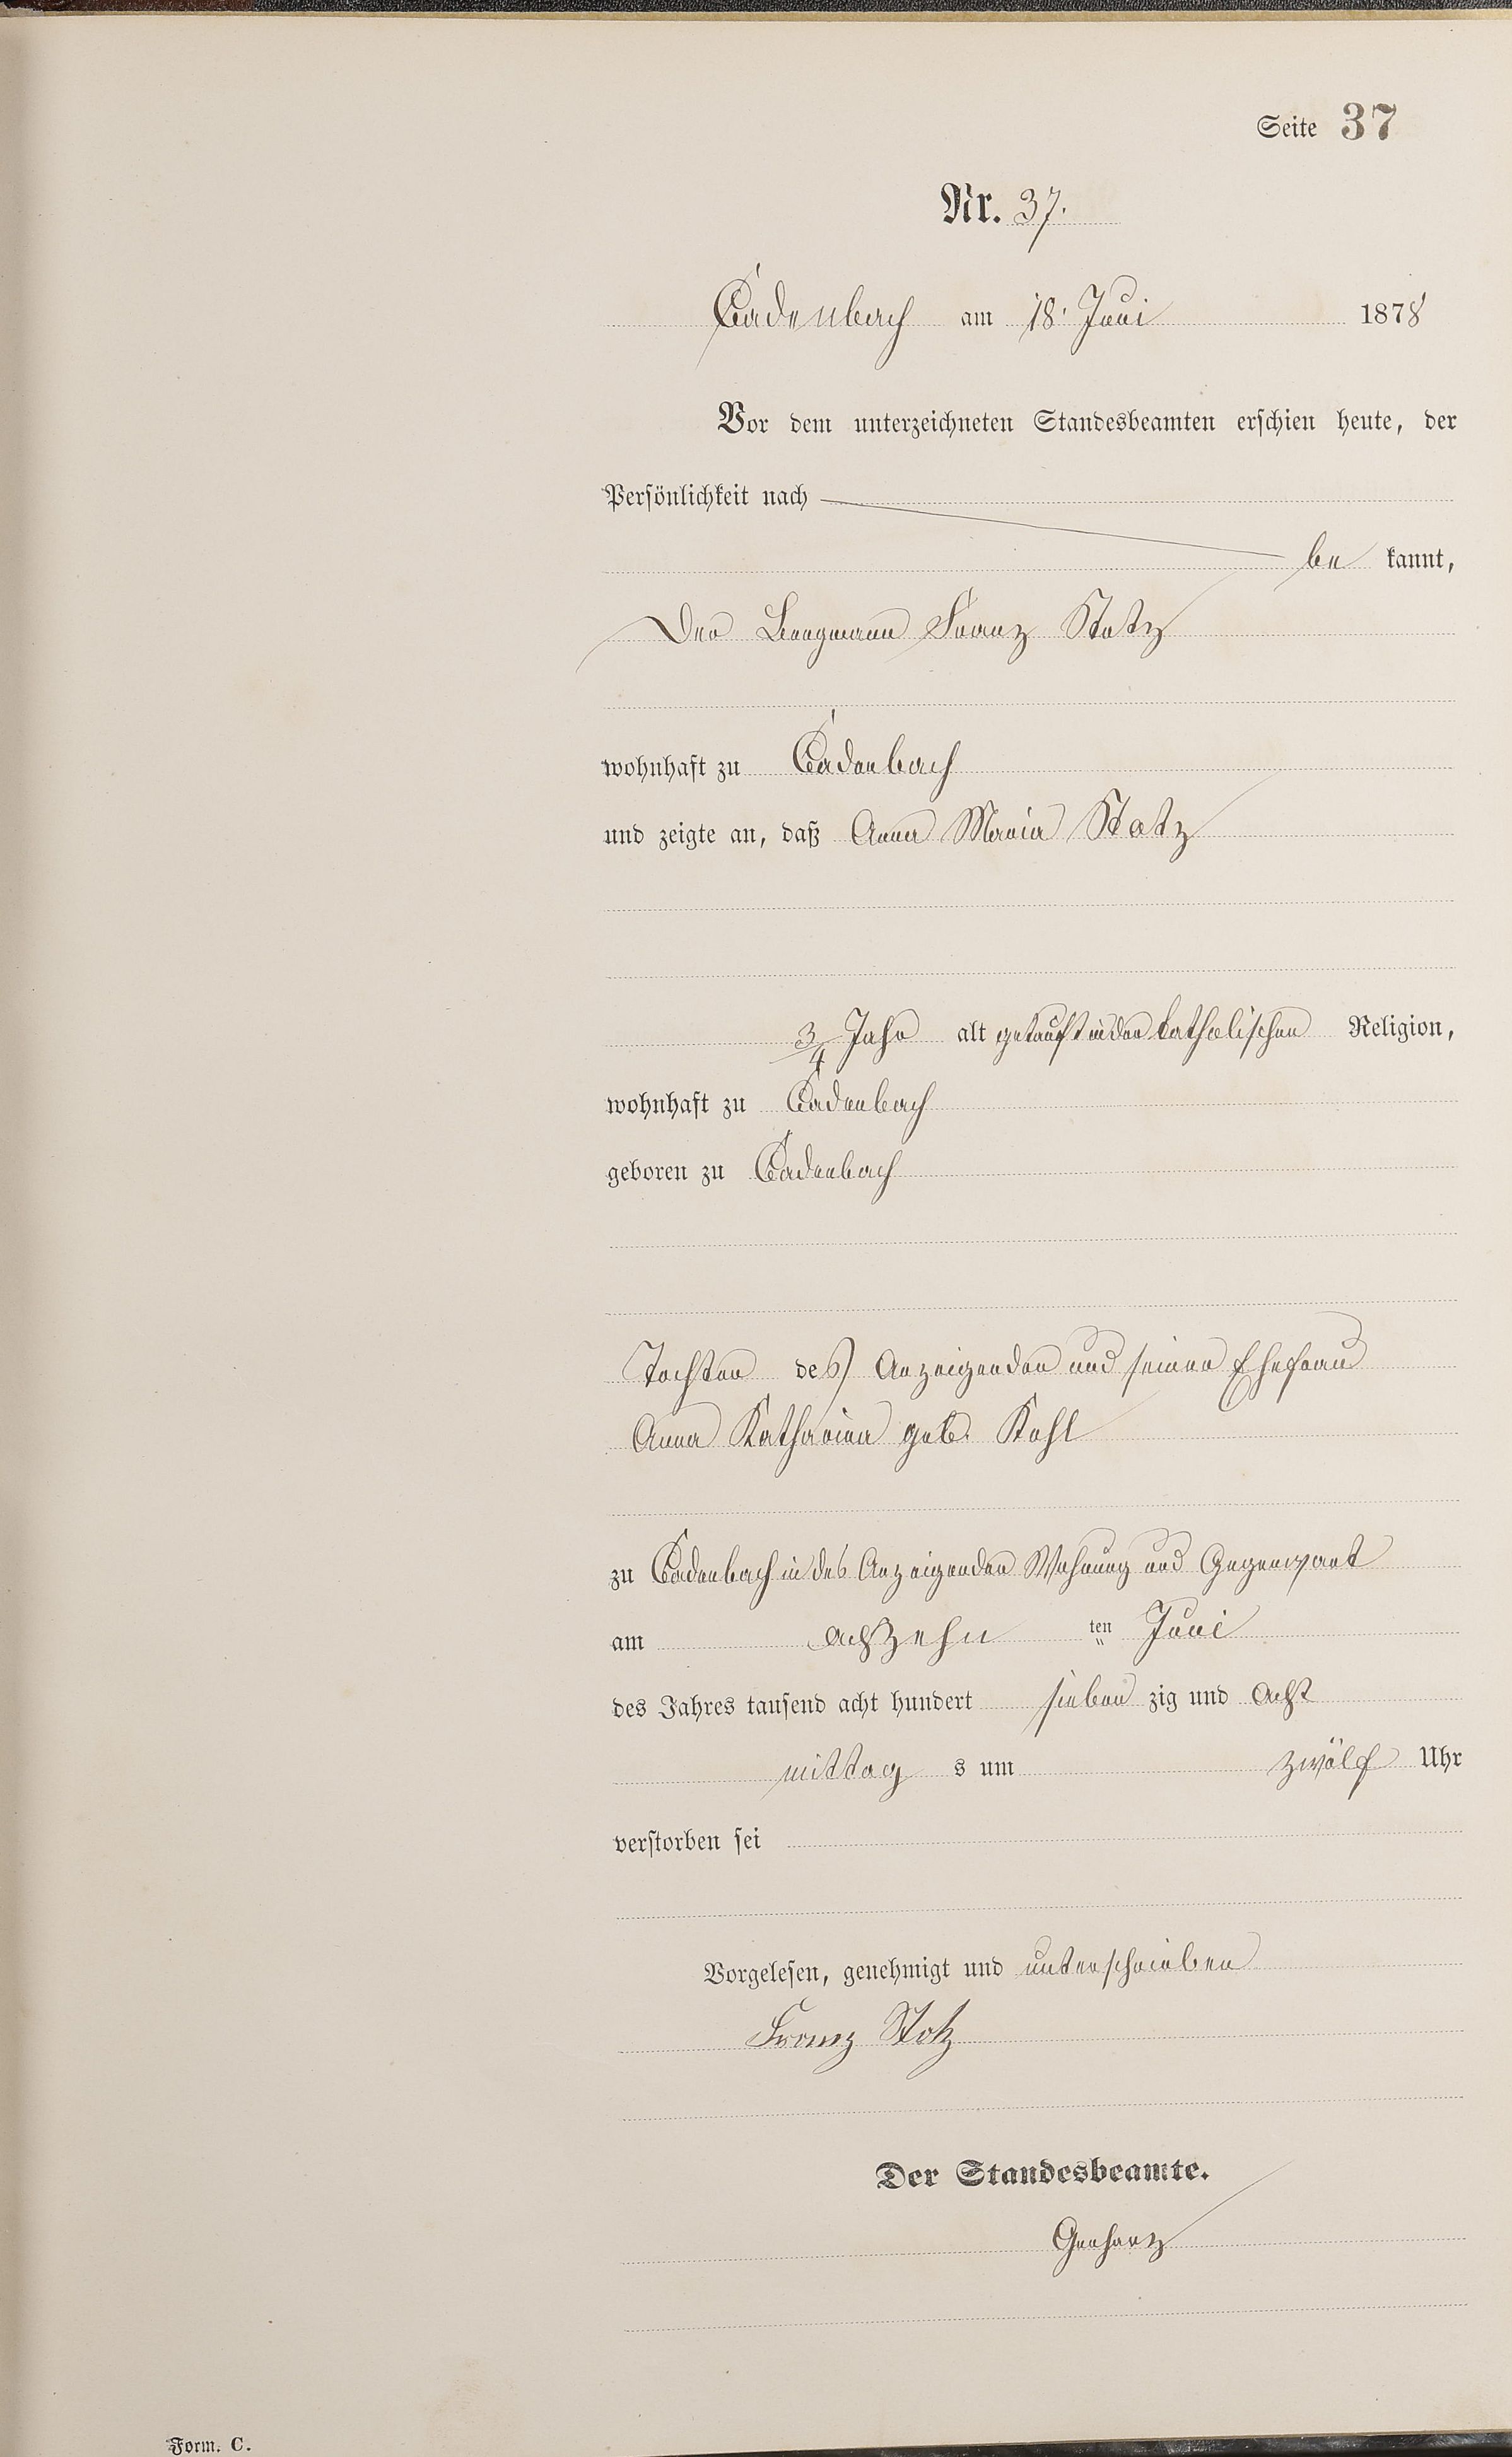 Seite 37
Nr. 37.
Cadenbach am 18. Juni 1878
Vor dem unterzeichneten Standesbeamten erschien heute, der
Persönlichkeit nach
be kannt,
Der Bergmann Franz Stotz
wohnhaft zu Cadenbach
und zeigte an, daß Anna Maria Stotz
3/4 Jahr alt getauft in der katholischen Religion,
wohnhaft zu Cadenbach
geboren zu Cadenbach
Tochter des Anzeigenden und seiner Ehefrau
Anna Katharina geb. Kohl
zu Cadenbach in des Anzeigenden Wohnung und Gegenwart
am achzehn ten Juni
des Jahres tausend acht hundert sieben zig und acht
mittag s um zwölf Uhr
verstorben sei
Vorgelesen, genehmigt und unterschrieben
Franz Stotz
Der Standesbeamte.
Gerharz
Form. C.